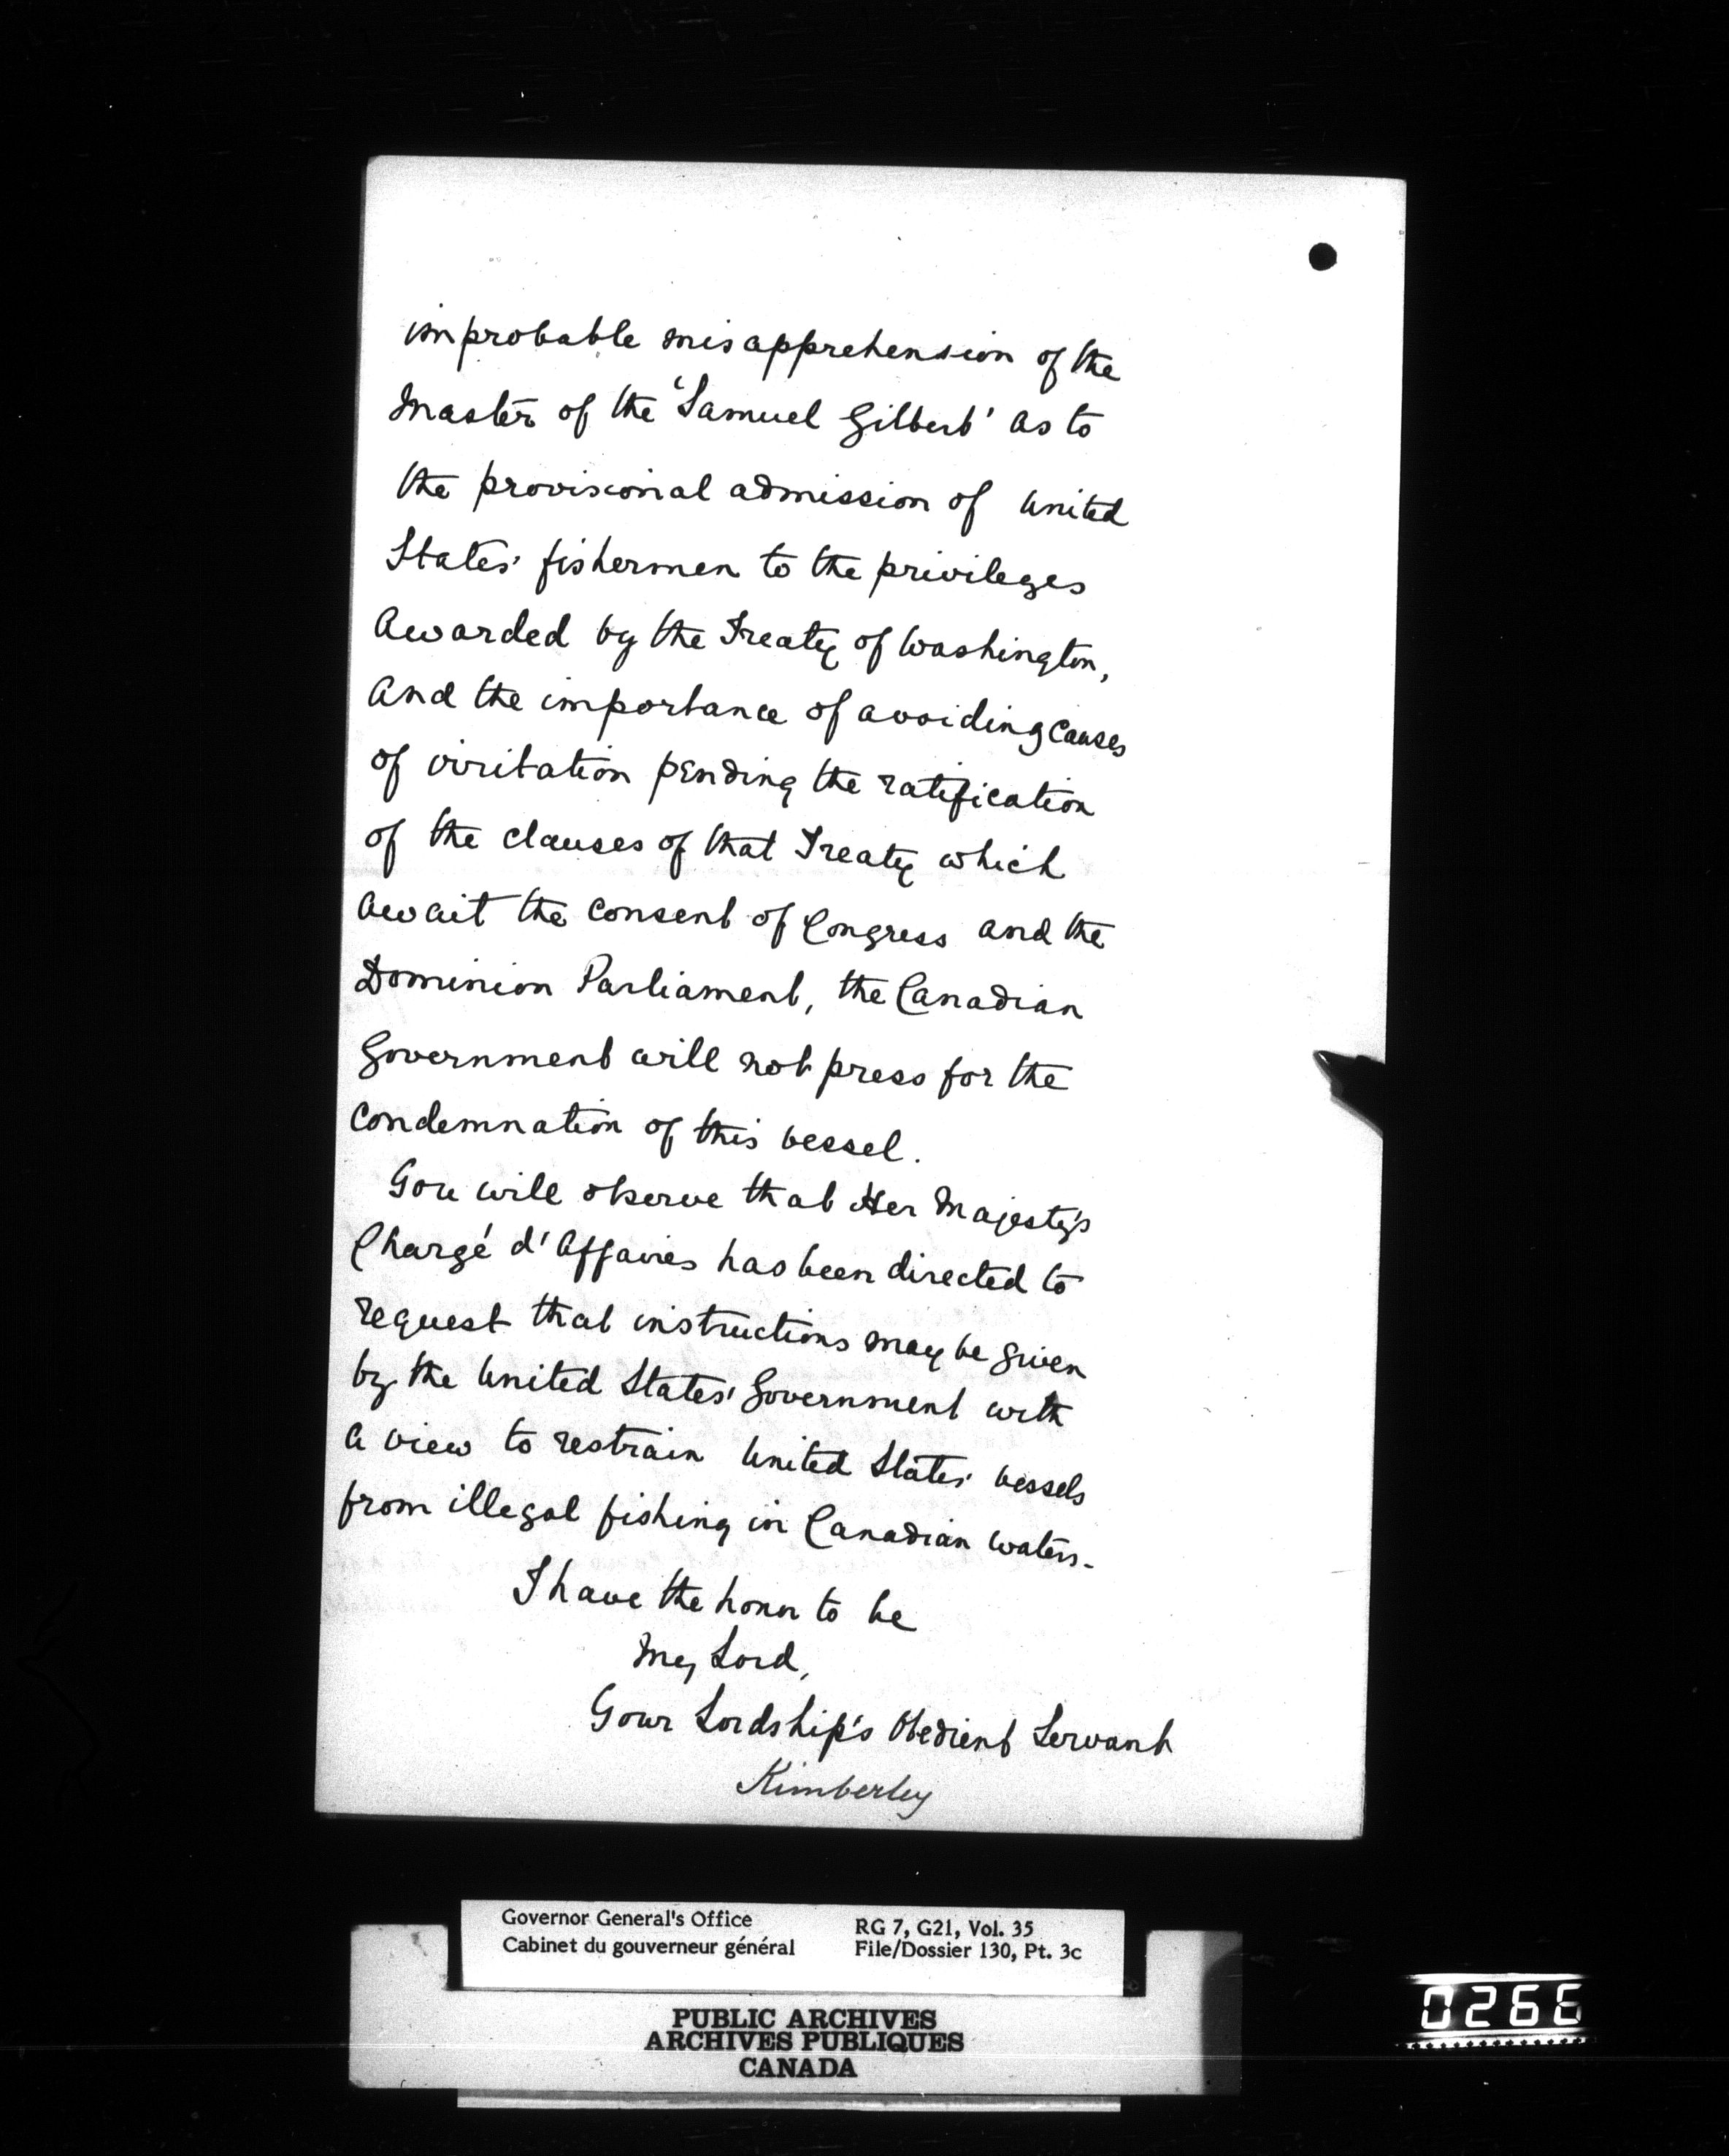 improbable misapprehension of the
Master of the 'Samuel Gilbert' as to
the provisional admission of United
States' fishermen to the privileges
awarded by the Treaty of Washington,
and the importance of avoiding causes
of irritation pending the ratification
of the clauses of that Treaty which
await the consent of Congress and the
Dominion Parliament, the Canadian
Government will not press for the
condemnation of this vessel.
You will observe that Her Majesty's
Chargé d'Affaires has been directed to
request that instructions may be given
by the United States' Government with
a view to restrain United States' vessels
from illegal fishing in Canadian waters.
I have the honor to be
My Lord,
Your Lordship's Obedient Servant
Kimberley
Governor General's Office
Cabinet du gouverneur général
RG 7, G21, Vol. 35
File/Dossier 130, Pt. 3c
PUBLIC ARCHIVES
ARCHIVES PUBLIQUES
CANADA
0266